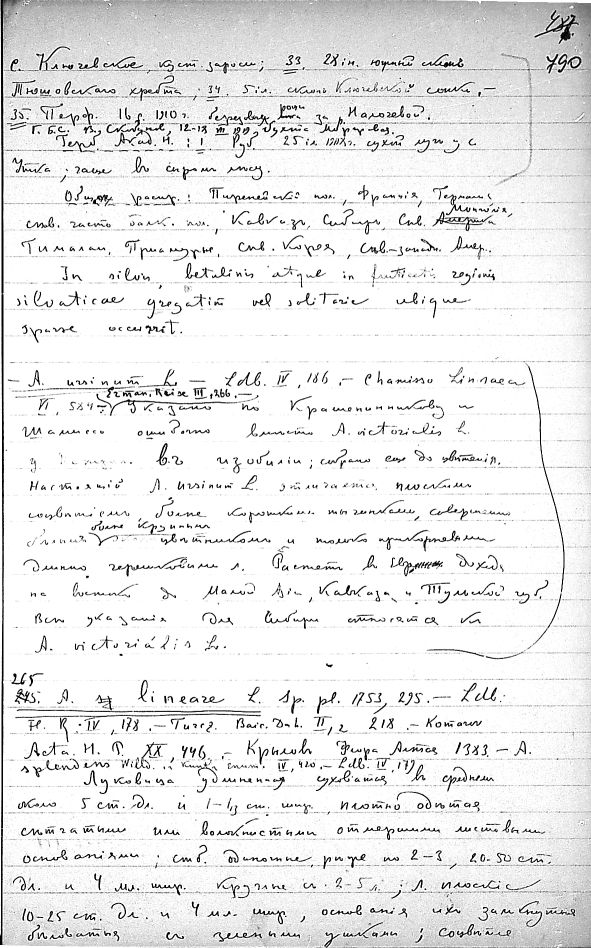 790
с. Ключевское, куст. заросли; 33. 28 iн. южный склонъ
Тюшовскаго хребта; 34. 5 iл. склонъ Ключевской сопки. –
35. Перф. 16 1910 г. березовая роща за р. Налочевой.
Г.Б.С. 12-18 III 1909, бухта
Герб. Акад. Н.: 1 Руб. 25 iл. сухой лугъ у с.
Утка; чаще въ сыромъ лесу.
Общее распр.: Пиренейскiй пол., Францiя, Германiя,
сѣв. часть балк. пол., Кавказъ, Сибирь, Сѣв. Монголiя,
Гималаи, Приамурье, сѣв. Корея, сѣв.-западн. Амер.
In silvis, betulinis atque in fruticetis regionis
silvaticae gregatim vel solitarie ubique
sparse occurrit.
– A. ursinum L. – Ldb. IV, 186. – Chamisso Linnaea
VI, 584. – Erman, Reise III, 266. – Указано по Крашенинникову и
Шамиссо ошибочно вместо A. victorialis L.
въ изобилiи; собрано еще до цвѣтенiя.
Настоящiй A. ursinum L. отличается плоскимъ
соцвѣтiемъ, болѣе короткими тычинками, совершенно
болѣе крупными цвѣтниками и только прикорневыми
длинно черешковыми л. Растетъ въ доходя
на востокъ до Малой Азiи, Кавказа и Тульской губ.
Всѣ указанiя для Сибири относятся къ
A. victorialis L.
265
A. lineare L. Sp. pl. 1753, 295. – Ldb.
Fl. R. IV, 178. – Turcz. Baic. Dah. II, 2 218. – Komarov
Acta H. P. XX 446. – Крыловъ Флора Алтая 1383. – A.
splendens Willd. Kunth enum. IV, 420. – Ldb. IV, 179
Луковица удлиненная суховатая въ среднемъ
около 5 ст. дл. и шир., плотно одѣтая
сѣтчатыми или волокнистыми отмершими листовыми
основанiями; стб. одиночные, рѣже по 2-3, 20-50 ст.
дл. и 4 мл. шир. круглые съ 2-5 л.; л. плоскiе
10-25 ст. дл. и 4 мл. шир., основанiя ихъ замкнутыя
бѣловатыя съ зелеными ушками; соцвѣтiе